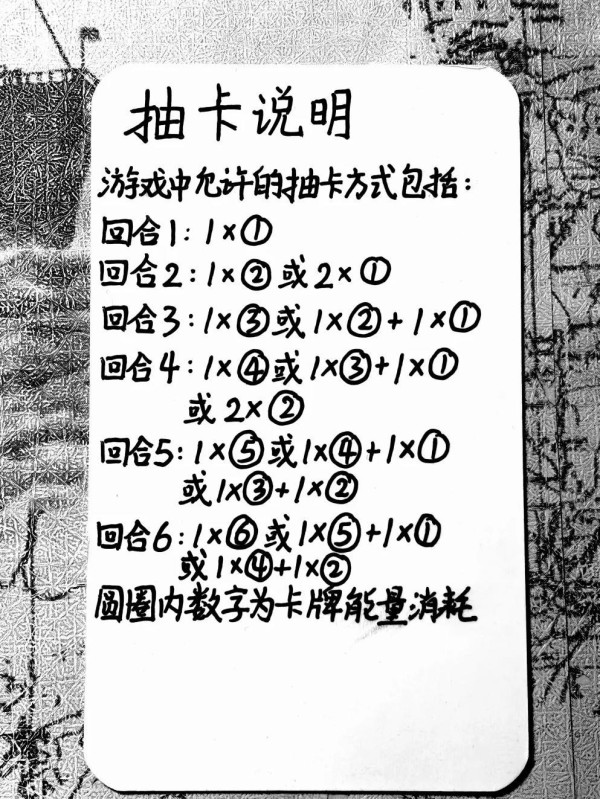 抽卡说明
游戏中允许的抽卡方式包括:
回合1: 1×①
回合2: 1×② 或 2×①
回合3: 1×③ 或 1×② + 1×①
回合4: 1×④ 或 1×③ + 1×①
或 2×②
回合5: 1×⑤ 或 1×④ + 1×①
或 1×③ + 1×②
回合6: 1×⑥ 或 1×⑤ + 1×①
或 1×④ + 1×②
圆圈内数字为卡牌能量消耗